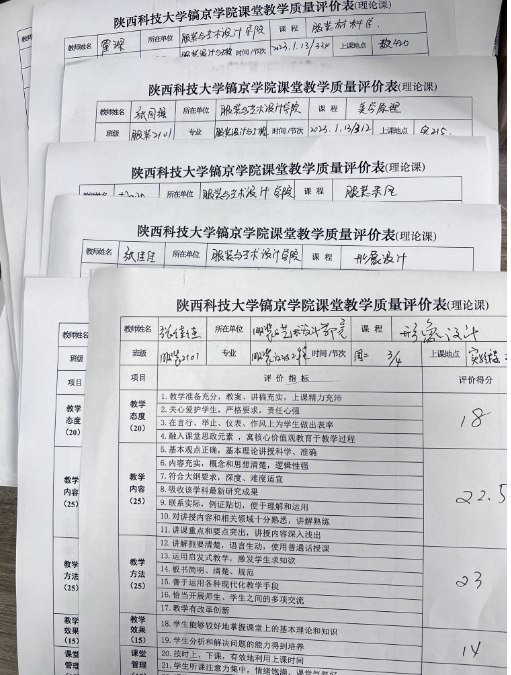 陕西科技大学镐京学院课堂教学质量评价表(理论课)
教师姓名 所在单位 服装与艺术设计学院 课 程 服装材料学
时间/节次 2023.1.13/334 上课地点 教420
陕西科技大学镐京学院课堂教学质量评价表(理论课)
教师姓名 所在单位 服装与艺术设计学院 课 程 美学原理
班级 服装2101 专业 服装设计与工程 时间/节次 2023.1.13/312 上课地点
陕西科技大学镐京学院课堂教学质量评价表(理论课)
所在单位 服装与艺术设计学院 课 程
陕西科技大学镐京学院课堂教学质量评价表(理论课)
教师姓名 张佳佳 所在单位 服装与艺术设计学院 课 程 形象设计
陕西科技大学镐京学院课堂教学质量评价表(理论课)
教师姓名 张佳佳 所在单位 课 程 形象设计
班级 服装2101 专业 时间/节次 周二 3/4 上课地点
项目 评 价 指 标 评价得分
教学态度(20)
1.教学准备充分，教案、讲稿充实，上课精力充沛
2.关心爱护学生，严格要求，责任心强
3.在言行、举止、仪表、作风上为学生做出表率
4.融入课堂思政元素，寓核心价值观教育于教学过程
18
教学内容(25)
5.基本观点正确，基本理论讲授科学、准确
6.内容充实，概念和思想清楚，逻辑性强
7.符合大纲要求，深度、难度适宜
8.吸收该学科最新研究成果
9.联系实际，例证贴切，便于理解和运用
10.对讲授内容和相关领域十分熟悉，讲解熟练
11.讲课重点和要点突出，讲授内容深入浅出
22.5
教学方法(25)
12.讲解扼要清楚，语言生动，使用普通话授课
13.运用启发式教学，激发学生求知欲
14.板书简明、清楚、规范
15.善于运用各种现代化教学手段
16.恰当开展师生、学生之间的多项交流
17.教学有改革创新
23
教学效果(15)
18.学生能够较好地掌握课堂上的基本理论和知识
19.学生分析和解决问题的能力得到培养
14
课堂管理
20.按时上、下课，有效地利用上课时间
21.学生听课注意力集中，情绪饱满，课堂气氛好